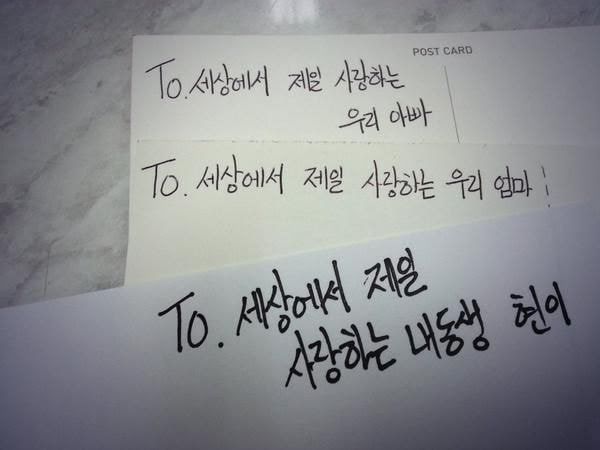 POST CARD
To. 세상에서 제일 사랑하는
우리 아빠
To. 세상에서 제일 사랑하는 우리 엄마
To. 세상에서 제일
사랑하는 내동생 현이